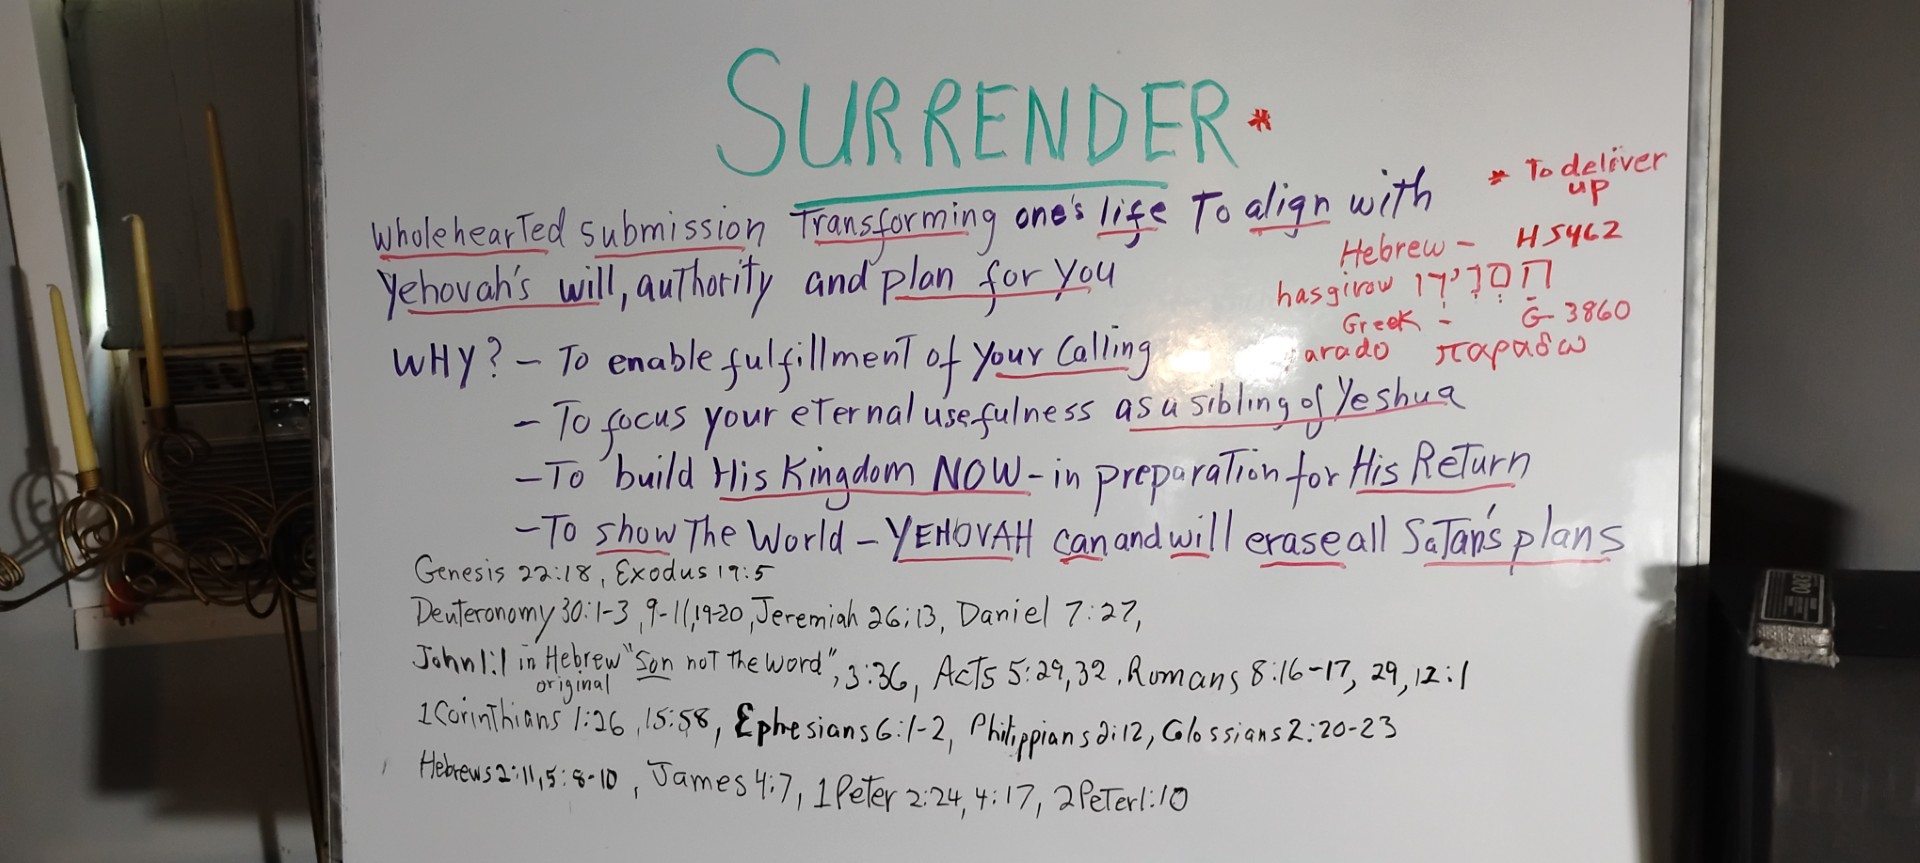 SURRENDER *
* To deliver up
Wholehearted submission Transforming one's life To align with
Yehovah's will, authority and plan for you
Hebrew - H5462
hasgirow
Greek - G-3860
arado παραδω
WHY? - To enable fulfillment of your Calling
- To focus your eternal usefulness as a sibling of Yeshua
- To build His Kingdom NOW - in preparation for His Return
- To show The World - YEHOVAH can and will erase all Satan's plans
Genesis 22:18, Exodus 19:5
Deuteronomy 30:1-3, 9-11, 19-20, Jeremiah 26:13, Daniel 7:27,
John 1:1 in Hebrew "Son not the word", 3:36, Acts 5:29, 32, Romans 8:16-17, 29, 12:1
original
1 Corinthians 1:26, 15:58, Ephesians 6:1-2, Philippians 2:12, Colossians 2:20-23
Hebrews 2:11, 5:8-10, James 4:7, 1 Peter 2:24, 4:17, 2 Peter 1:10